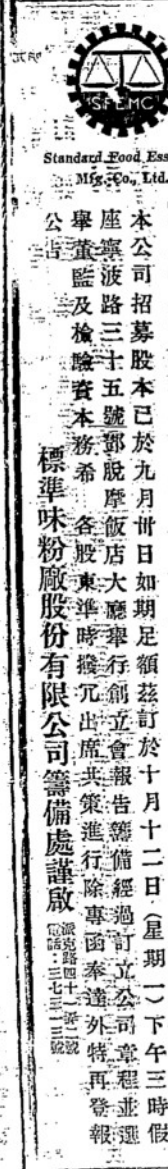 SFEMC
Standard Food Ess
Mfg. Co., Ltd.
本公司招募股本已於九月卅日如期足額茲訂於十月十二日（星期一）下午三時假
座寧波路三十五號鄧脫摩飯店大廳舉行創立會報告籌備經過訂立公司章程並選
舉董監及檢驗資本務希 各股東準時撥冗出席共策進行除專函奉達外特再登報
公告
標準味粉廠股份有限公司籌備處謹啟
派克路四十一弄二號
電話：三七三一三號